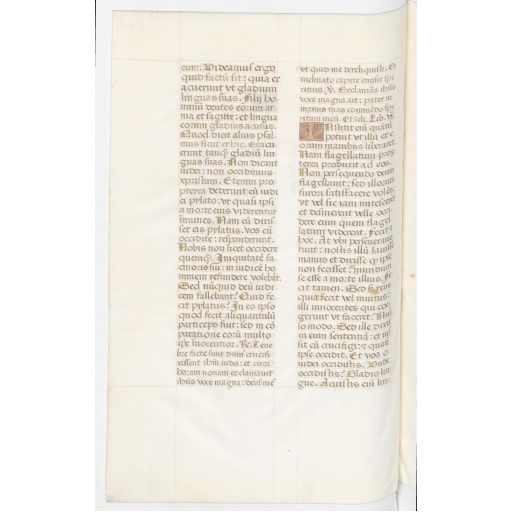 eum. Videamus ergo
quid factū sit: quia ex
acuerunt vt gladium
linguas suas. Filij ho
minū dentes eorum ar
ma et sagitte: et lingua
eorum gladius acutus.
Quod dicit alius psal
mus sicut et hic. Exacu
erunt tanq̄ gladiū lin
guas suas. Non dicant
iudei: non occidimus
xpristum. Etenim pro
pterea dederunt eū iudi
ci pylato: vt quasi ipsi
a morte eius viderentur
īmunes. Nam cū dixis
set eis pylatus. vos eū
occidite: responderunt.
Nobis non licet occidere
quemq̄. Iniquitatē fa
cinoris sui: in iudicē ho
minem refundere volebāt.
Sed nūquid deū iudi
cem fallebant? Quid fe
cit pylatus? In eo ipso
quod fecit aliquantulū
particeps fuit: sed in cō
paratione eorū multo
ip̄e innocentior. R. Tene
bre facte sunt dum crucifi
xissent ihūm iudei: et circa
horam nonam exclamauit
ihūs voce magna: deus me
vt quid me dereliquisti. Et
inclinato capite emisit spi
ritum. V. Exclamās ihūs
voce magna ait: pater in
manus tuas commēdo spi
ritum meū. Et
Institit eni quātū
potuit vt illū ex e
orum manibus liberaret.
Nam flagellatum prop
terea produxit ad eos.
Non persequendo deum
flagellauit: sed illorum
furori satisfacere volēs:
vt vel sic iam mitescerēt
et desinerent velle occi
dere cum quem flagel
latum viderent. Fecit ⁊
hoc. At vbi perseuerauē
runt: nostis illū lauisse
manus et dixisse q̄ ip̄se
non fecisset: mundum
se esse a morte illius. Fe
cit tamen. Sed si reus
quia fecit vel inuitus:
illi innocentes qui coe
gerunt vt faceret? Nul
lo modo. Sed ille dixit
in eum sententiā: et ius
sit eū crucifigi: ⁊ quasi
ipse occidit. Et vos o
iudei occidistis. Unde
occidistis? Gladio lin
gue. Acuistis enī lin